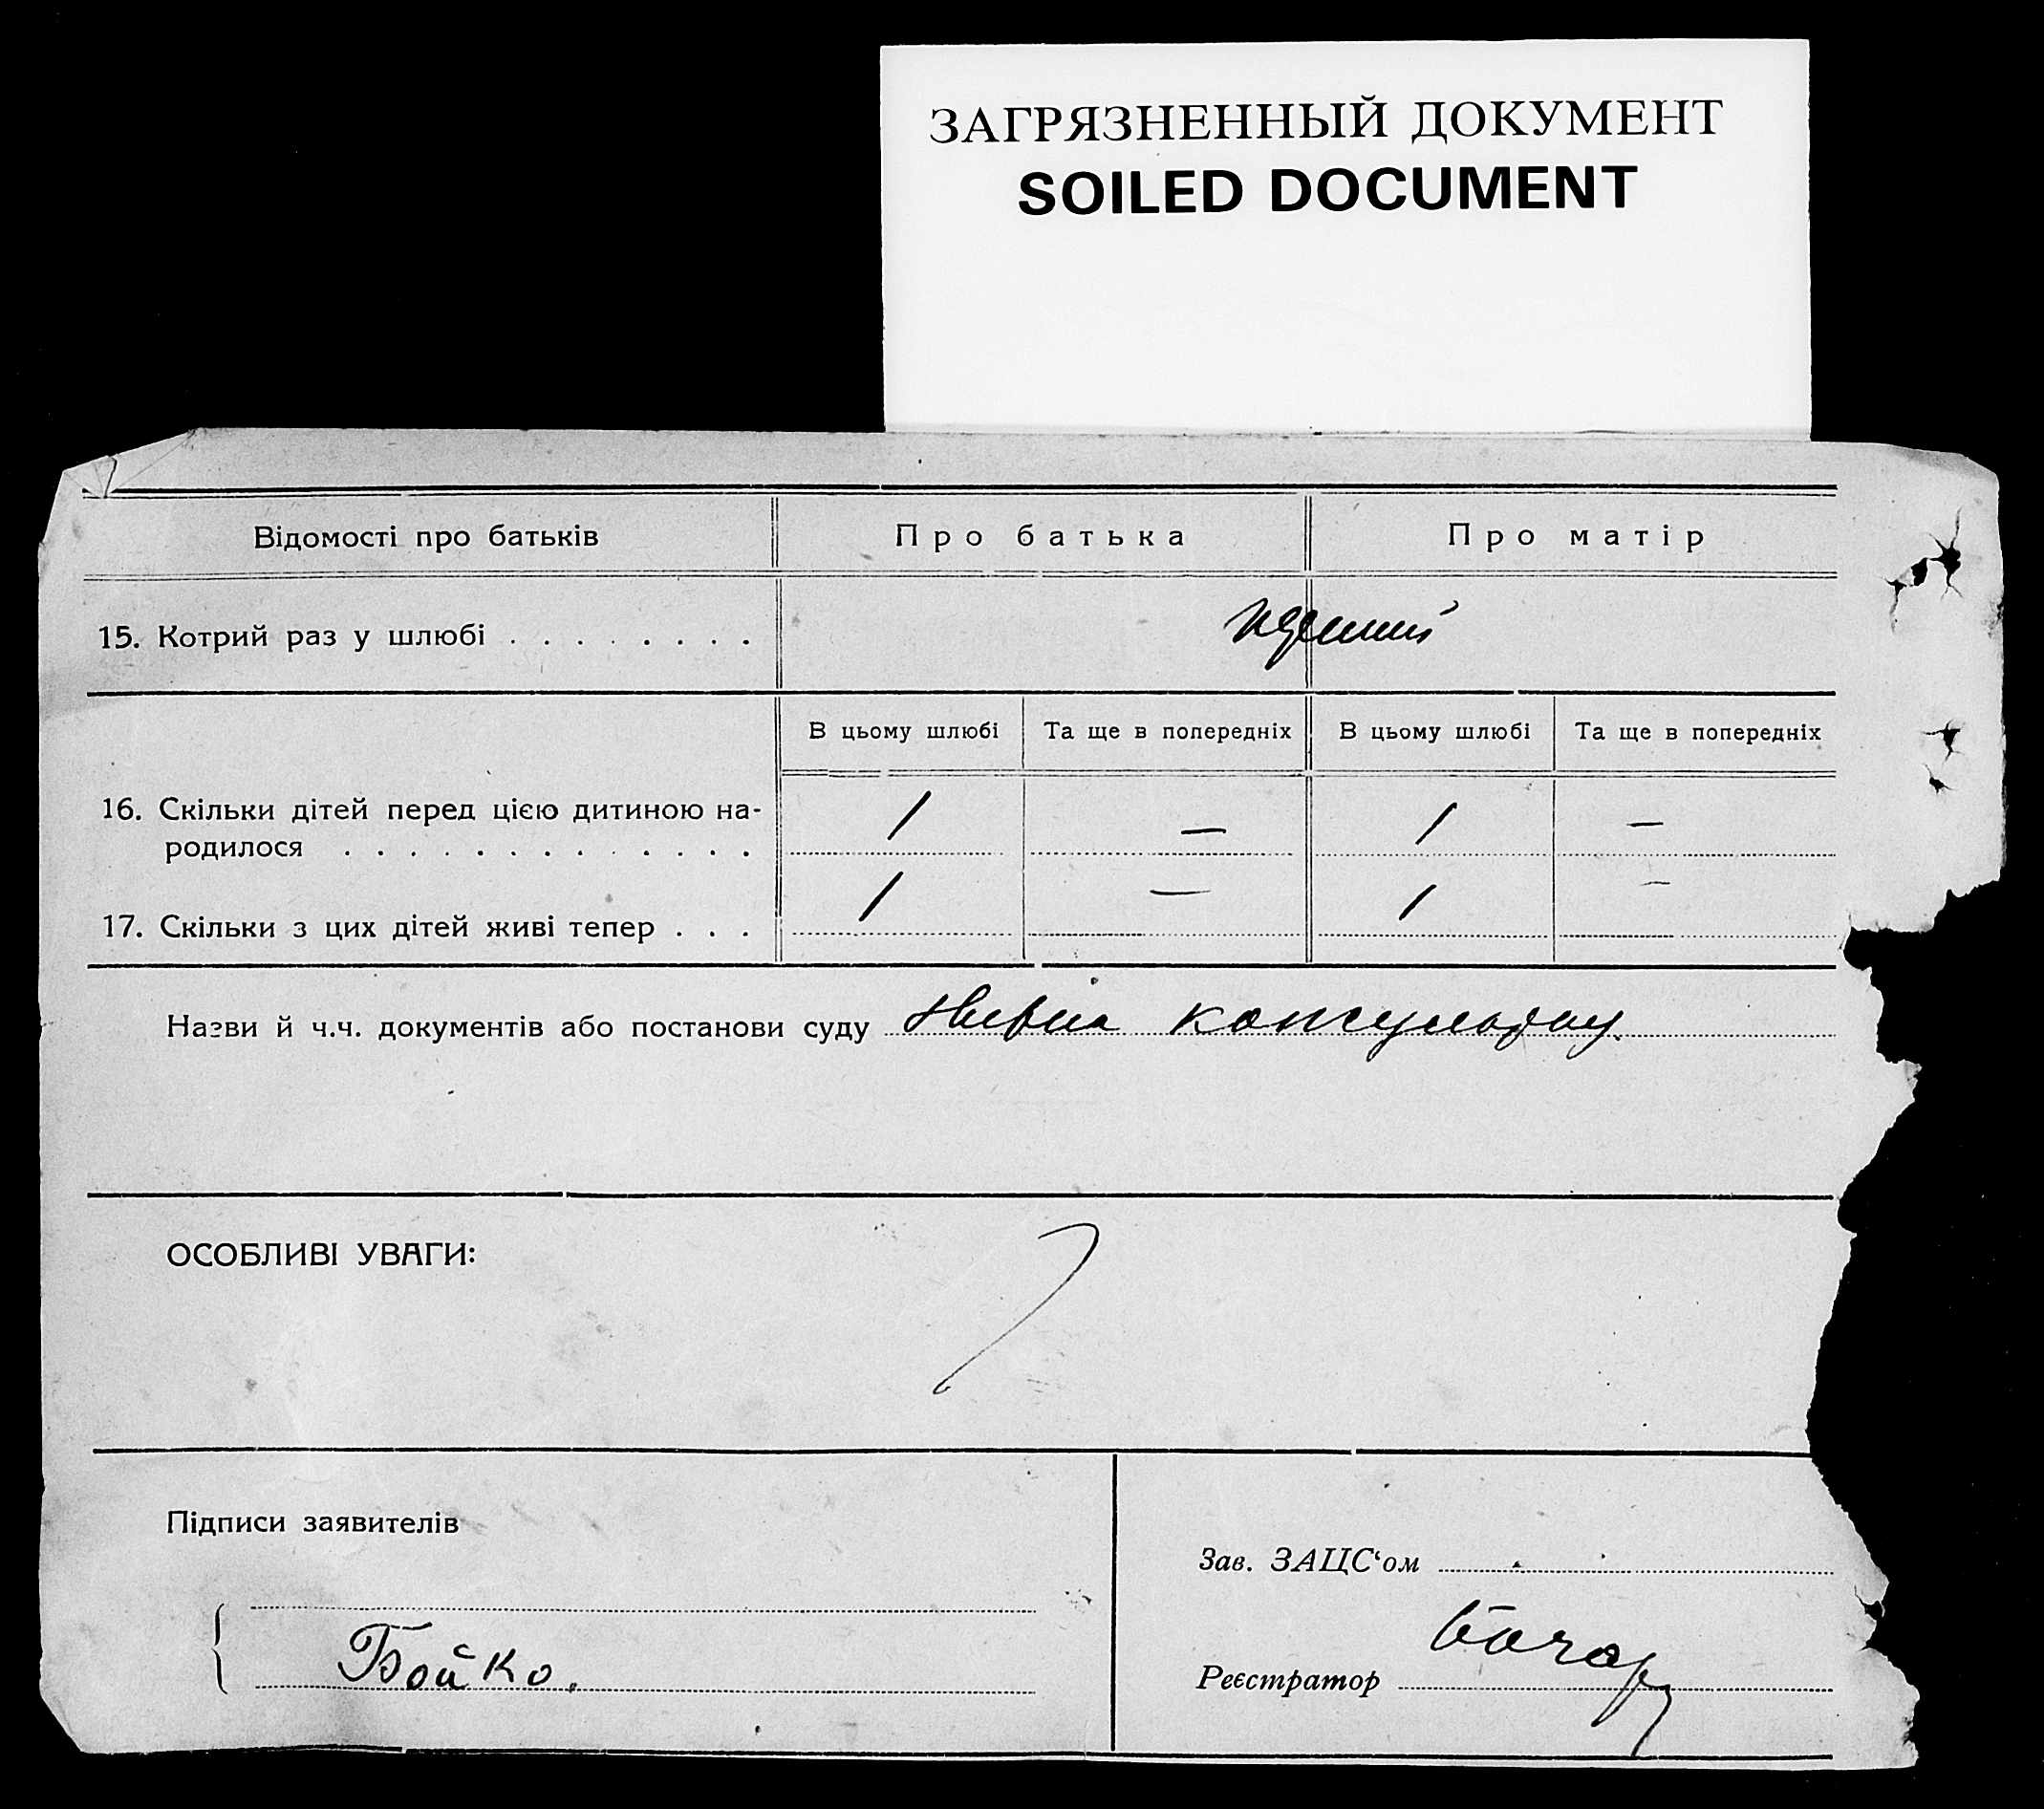 ЗАГРЯЗНЕННЫЙ ДОКУМЕНТ
SOILED DOCUMENT
Відомості про батьків Про батька Про матір
15. Котрий раз у шлюбі . . . . . . . .
В цьому шлюбі Та ще в попередніх В цьому шлюбі Та ще в попередніх
16. Скільки дітей перед цією дитиною на-
родилося . . . . . . . . . . . . . 1 — 1 —
17. Скільки з цих дітей живі тепер . . . 1 — 1 —
Назви й ч.ч. документів або постанови суду
ОСОБЛИВІ УВАГИ:
Підписи заявителів
Зав. ЗАЦС‘ом
Бойко.
Реєстратор